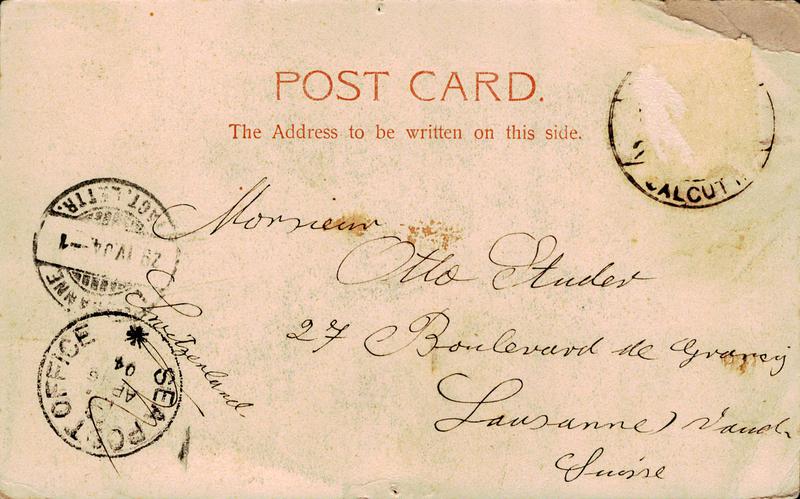 POST CARD.
The Address to be written on this side.
CALCUT
CT. LETTR.
29 IV. 04.-1
ANNE
Monsieur
Otto Studer
27 Boulevard de Grancy
Lausanne Vaud.
Suisse
Switzerland.
SEA POST OFFICE
AP
04